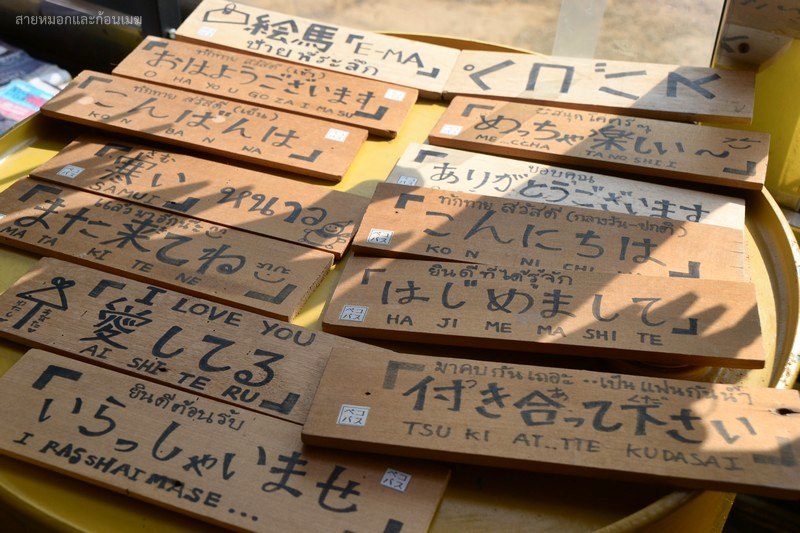 สายหมอกและก้อนเมฆ
絵馬「E-MA」
ขายที่ระลึก
ทักทาย สวัสดี (เช้า)
「おはようございます」
O HA YO U GO ZA I MA SU
ทักทาย สวัสดี (เย็น)
「こんばんは」
KO N BA N WA
「寒い
SAMUI
หนาว
แล้วมาอีกนะ
「また来てね」
MA TA KI TE NE
I LOVE YOU
「愛してる」
AI SHI TE RU
ยินดีต้อนรับ
「いらっしゃいませ」
I RASSHAI MASE...
「めっちゃ楽しい〜」
ME..CCHA TANOSHII
ขอบคุณ
「ありがとうございます」
ทักทาย สวัสดี (กลางวัน-ปกติ)
「こんにちは」
KO N NI CHI
ペコパス
ยินดีที่ได้รู้จัก
「はじめまして」
HA JI ME MA SHI TE
ペコパス
มาคบกันเถอะ...เป็นแฟนกันน้า
「付き合って下さい」
TSU KI AT..TTE KUDASAI
ペコパス